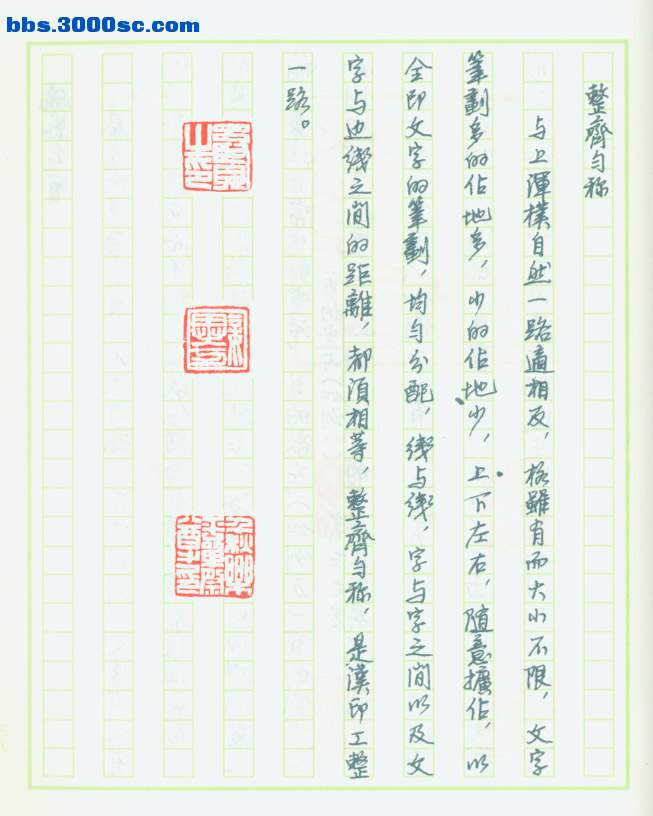 bbs.3000sc.com
整齊勻称
与上渾樸自然一路適相反，格雖有而大小不限，文字
筆劃多的佔地多，少的佔地少，上下左右，隨意擴佔，以
全印文字的筆劃，均勻分配，綫与綫，字与字之間以及文
字与边綫之間的距離，都須相等，整齊勻称，是漢印工整
一路。